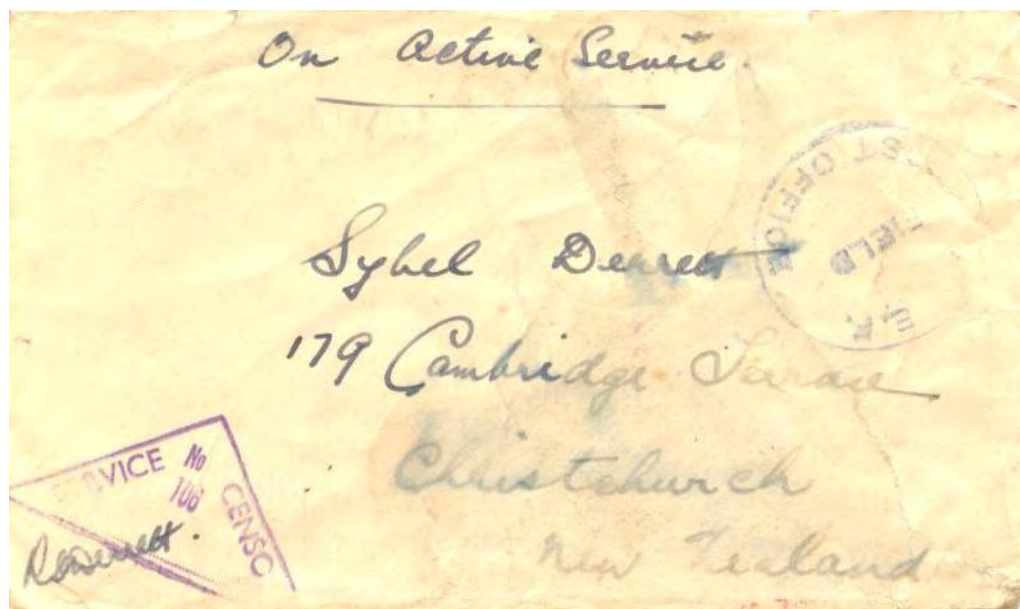 On Active Service.
Sybel Derrett
179 Cambridge Terrace
Christchurch
New Zealand
ST OFFICE
FIELD
E.F.
VICE No
106
CENSO
Derrett.